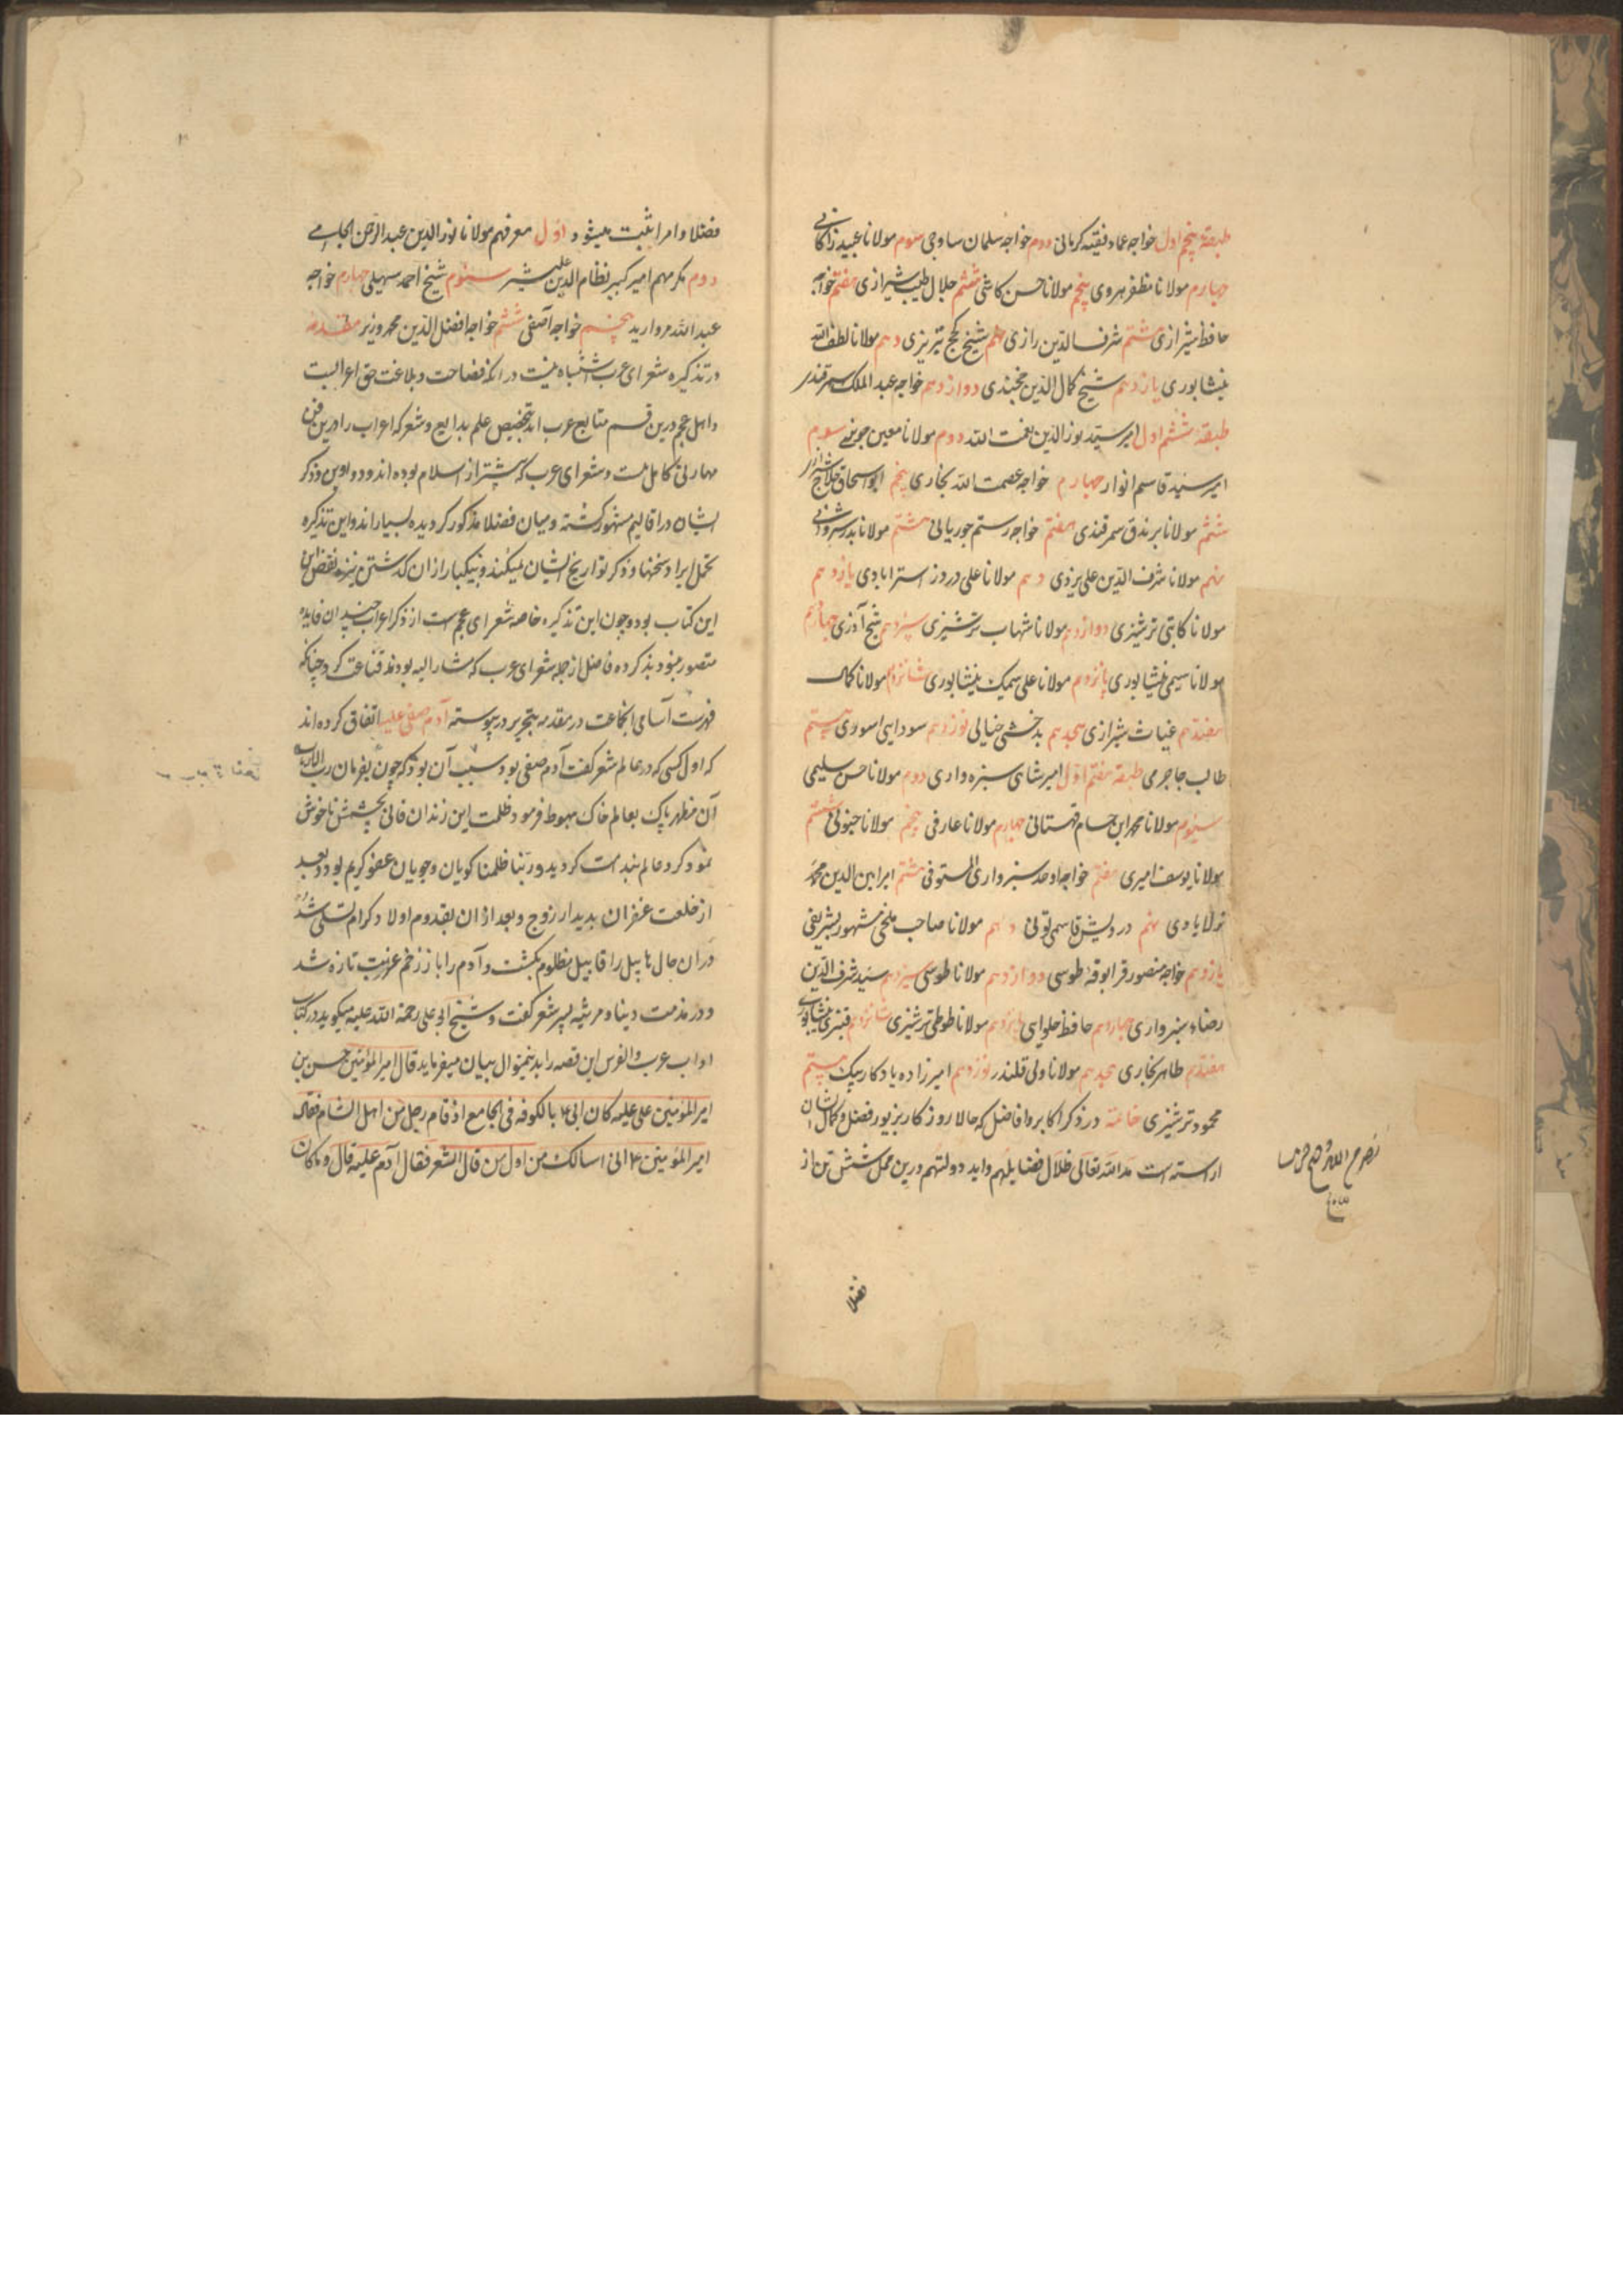 طبقهٔ پنجم اول خواجه عماد فقیه کرمانی دوم خواجه سلمان ساوجی سوم مولانا عبید زاکانی
چهارم مولانا مظفر هروی پنجم مولانا حسن کاشی ششم جلال طبیب شیرازی هفتم خواجه
حافظ شیرازی هشتم شرف الدین رازی نهم شیخ کجج تبریزی دهم مولانا لطف الله
نیشابوری یازدهم شیخ کمال الدین خجندی دوازدهم خواجه عبد الملک سمرقندی
طبقهٔ ششم اول امیر سید نور الدین نعمت الله دوم مولانا معین جوینی سوم
امیر سید قاسم انوار چهارم خواجه عصمت الله بخاری پنجم ابو اسحاق حلاج شیرازی
ششم مولانا برندق سمرقندی هفتم خواجه رستم جوریانی هشتم مولانا بدر شیروانی
نهم مولانا شرف الدین علی یزدی دهم مولانا علی دردزد استرابادی یازدهم
مولانا کاتبی ترشیزی دوازدهم مولانا شهاب ترشیزی سیزدهم شیخ آذری چهاردهم
مولانا سیمی نیشابوری پانزدهم مولانا علی سمیک نیشابوری شانزدهم مولانا کمال
هفتدهم غیاث شیرازی هجدهم بدخشی خیالی نوزدهم سودایی اسودی بیستم
طالب جاجرمی طبقهٔ هفتم اول امیر شاهی سبزه واری دوم مولانا حسن سلیمی
سیوم مولانا محمد ابن حسام قهستانی چهارم مولانا عارفی پنجم مولانا جنونی ششتم
مولانا یوسف امیری هفتم خواجه اوحد سبزواری المستوفی هشتم امیر امین الدین محمد
نزلابادی نهم درویش قاسمی تونی دهم مولانا صاحب بلخی مشهور بشریفی
یازدهم خواجه منصور قرابوقهٔ طوسی دوازدهم مولانا طوسی سیزدهم سید شرف الدین
رضاء سبزواری چهاردهم حافظ حلوایی پانزدهم مولانا طوطی ترشیزی شانزدهم قنبری نیشابوری
هفتدهم طاهر بخاری هجدهم مولانا ولی قلندر نوزدهم امیرزاده یادکار بیک بیستم
محمود ترشیزی خاتمه در ذکر اکابر و افاضل که حالا روزکار بزیور فضل و کمال ایشان
اراسته است مد الله تعالی ظلال فضایلهم و ابد دولتهم درین محل شش تن از
فضلا
فضلا و امرا ثبت میشود اول معرفهم مولانا نور الدین عبد الرحمن الجامی
دوم مکرمهم امیر کبیر نظام الدین علیشیر سیوم شیخ احمد سهیلی چهارم خواجه
عبد الله مروارید پنجم خواجه آصفی ششم خواجه افضل الدین محمد وزیر مقدمه
در تذکیره شعرای عرب اشتباه نیست در انکه فصاحت و بلاغت حق اعرابست
و اهل عجم درین قسم متابع عرب اند بتخصیص علم بدایع و شعر که اعراب را درین فن
مهارتی کامل است و شعرای عرب که پیشتر از اسلام بوده اند و دواوین و ذکر
ایشان در اقالیم مشهور کشته و میان فضلا مذکور کردیده بسیار اند و این تذکیره
تحمل ایراد سخنها و ذکر تواریخ ایشان نمیکند و بیکبار از ان کذشتن نیز نقض این
این کتاب بود و چون این تذکیره خاصه شعرای عجم است از ذکر اعراب چندان فایده
متصور نبود بذکر ده فاضل از جمله شعرای عرب که مشار الیه بودند قناعت کرد چنانکه
فهرست آسامی انجماعت در مقدمه بتحریر درپیوسته آدم صفی علیه اتفاق کرده اند
که اول کسی که در عالم شعر کفت آدم صفی بود و سبب آن بود که چون بفرمان رب الارباب
آن مظهر پاک بعالم خاک هبوط فرمود ظلمت این زندان فانی بچشمش ناخوش
نمود کرد عالم بندامت کردید و ربنا ظلمنا کویان و جویان عفو کریم بود و بعد
از خلعت غفران بدیدار زوج و بعد از ان بقدوم اولاد کرام تسلی شد
در ان حال هابیل را قابیل مظلوم بکشت و آدم را باز زخم غربت تازه شد
و در مذمت دنیا و مرثیه پسر شعر کفت و شیخ ابو علی رحمة الله علیه میکوید در کتاب
اداب عرب والفرس این قصه را بدینمنوال بیان میفرماید قال امیر المؤمنین حسن بن
امیر المؤمنین علی علیه کان ابی ع بالکوفه فی الجامع اذ قام رجل من اهل الشام فقال
امیر المؤمنین ع انی اسالک من اول من قال الشعر فقال آدم علیه قال و ما کان